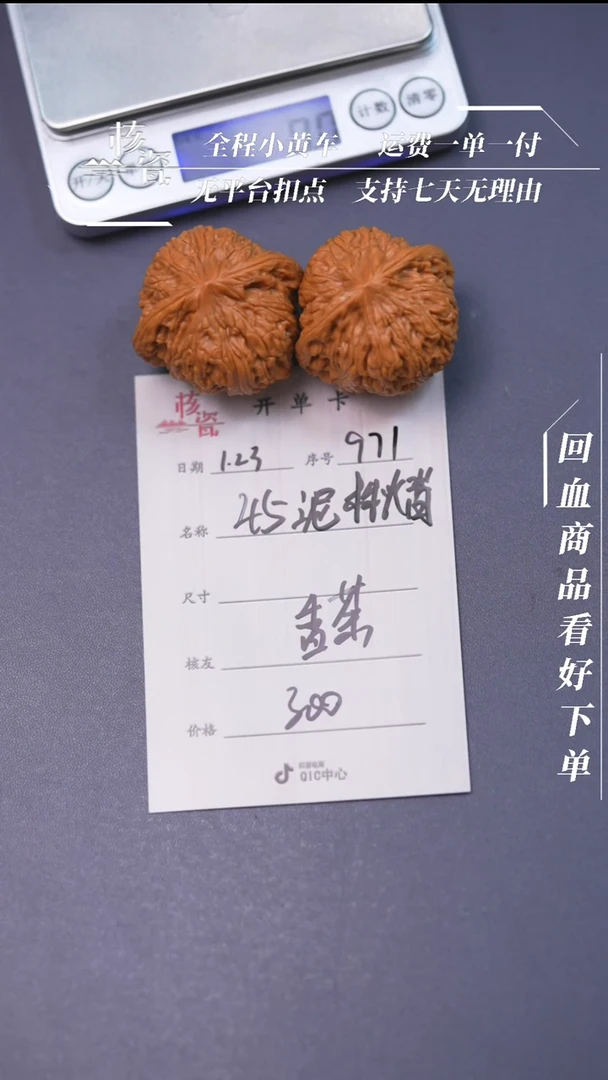 计数
清零
开/关
核瓷
全程小黄车 运费一单一付
无平台扣点 支持七天无理由
核瓷 开单卡
日期 1.23 序号 971
名称 45泥料
尺寸
核友 香茶
价格 300
抖音电商
QIC中心
回血商品看好下单